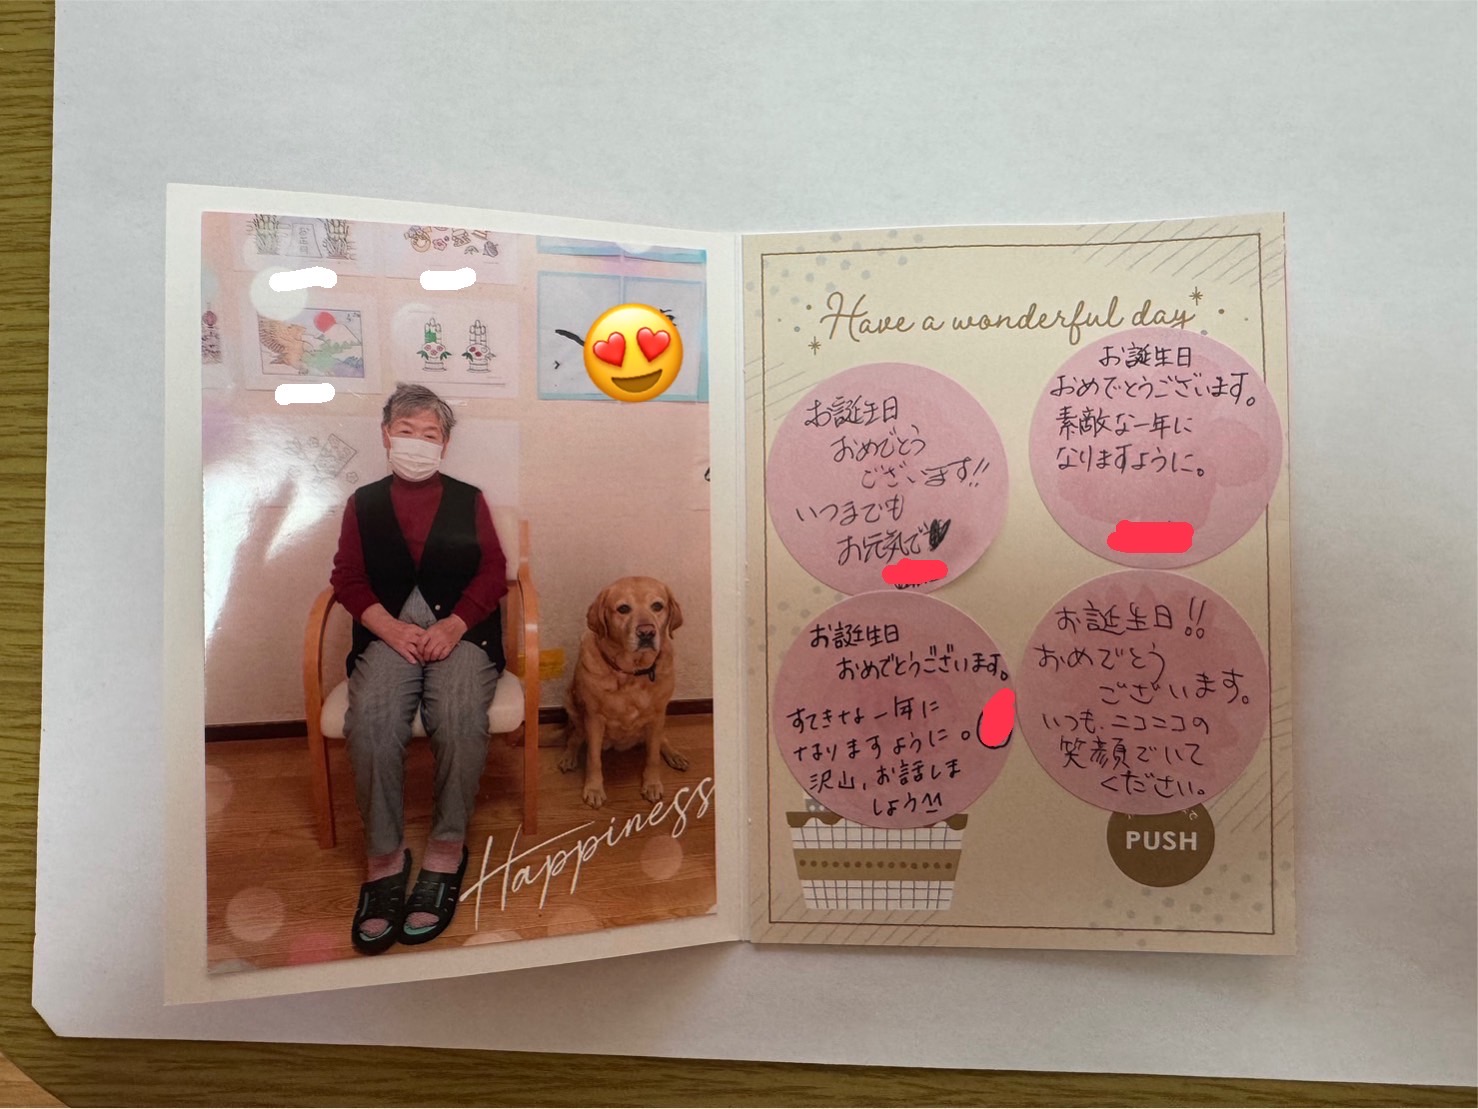 Happiness
Have a wonderful day
お誕生日
おめでとう
ございます!!
いつまでも
お元気で
お誕生日
おめでとうございます。
素敵な一年に
なりますように。
お誕生日
おめでとうございます。
すてきな一年に
なりますように。
沢山、お話しま
しょう^^
お誕生日!!
おめでとう
ございます。
いつも、ニコニコの
笑顔でいて
ください。
PUSH